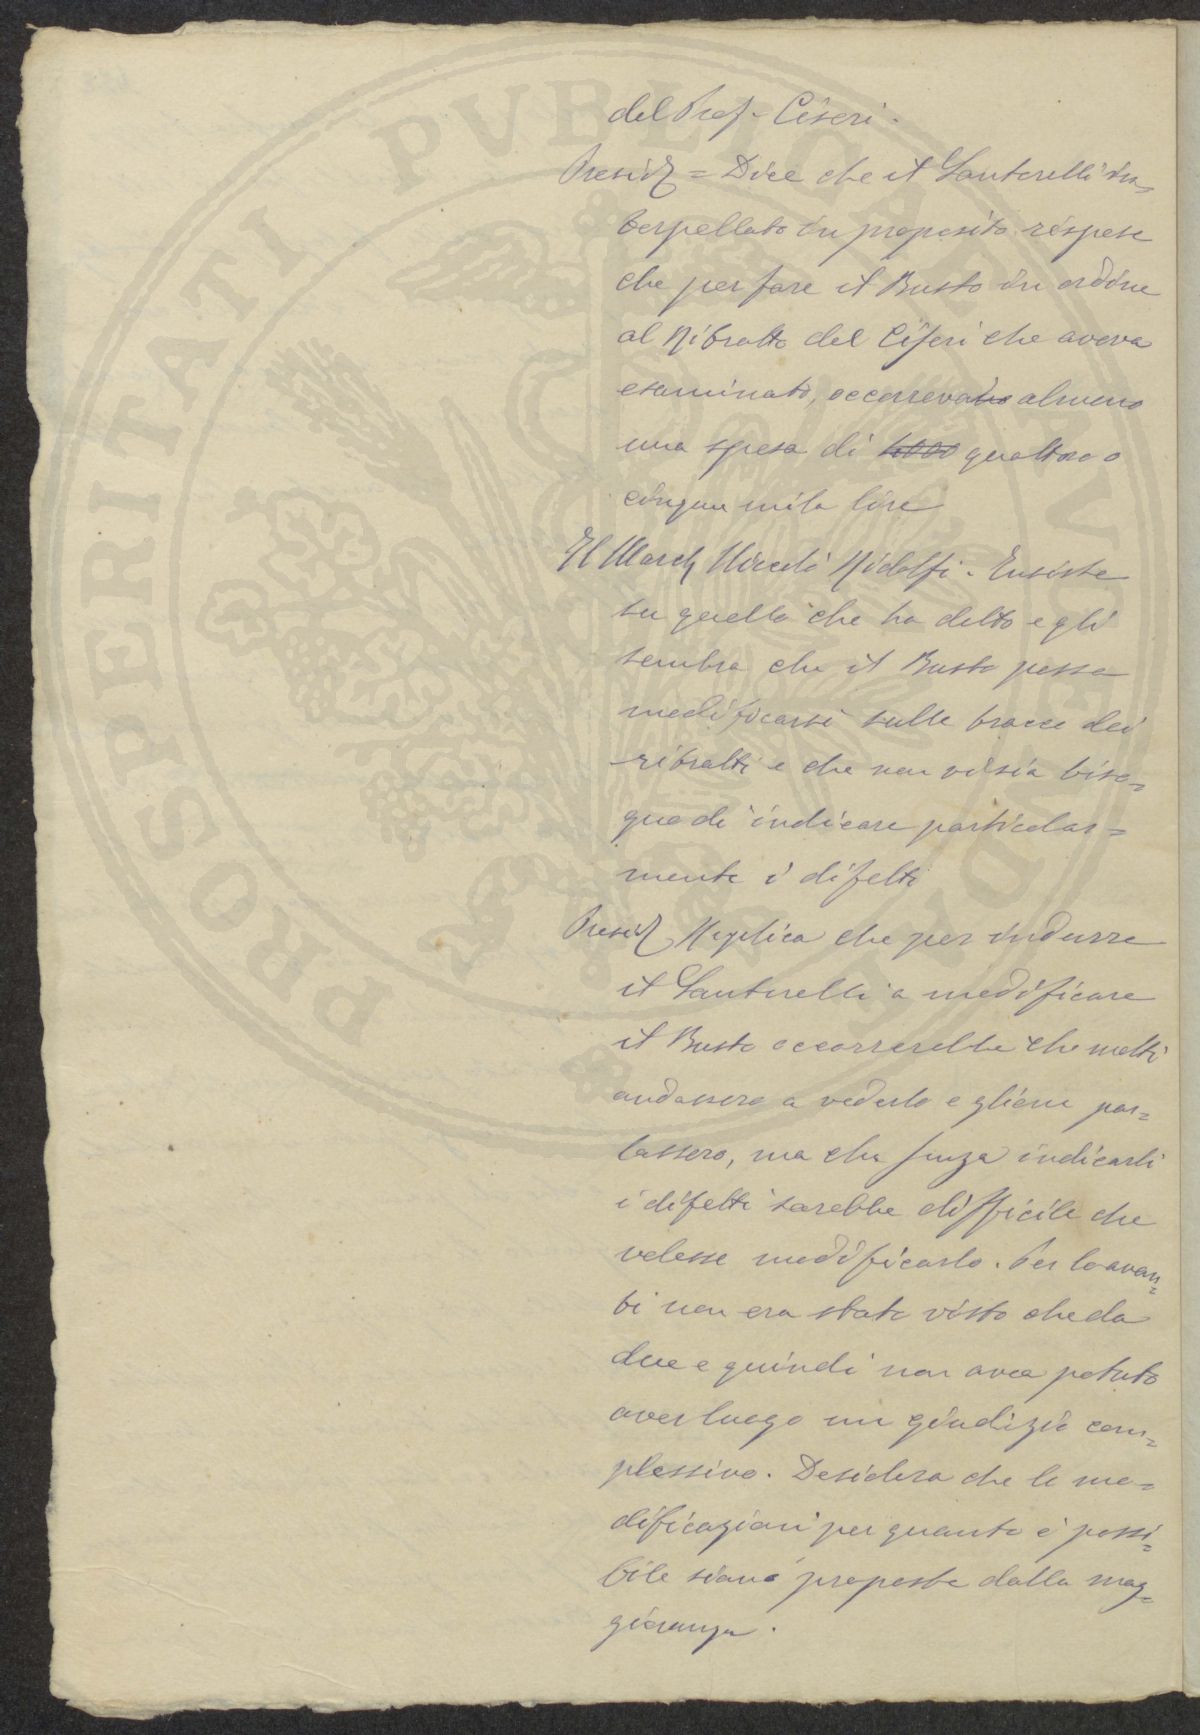 del Prof. Ciseri.
Presid.e = Dice che il Santarelli in=
terpellato in proposito rispose
che per fare il Busto in ordine
al Ritratto del Ciseri che aveva
esaminato, occorrevano almeno
una spesa di 4000 quattro o
cinque mila lire
Il March. Niccolò Ridolfi. Insiste
su quello che ha detto e gli
sembra che il Busto possa
modificarsi sulle tracce dei
ritratti e che non vi sia biso=
gno di indicare particolar=
mente i difetti
Presid.e Replica che per indurre
il Santarelli a modificare
il Busto occorrerebbe che molti
andassero a vederlo e gliene par=
lassero, ma che senza indicarli
i difetti sarebbe difficile che
volesse modificarlo. Per lo avan=
ti non era stato visto che da
due e quindi non avea potuto
aver luogo un giudizio com=
plessivo. Desidera che le mo=
dificazioni per quanto è possi=
bile siano proposte dalla mag=
gioranza.
PROSPERITATI PVBLICAE AVGENDAE